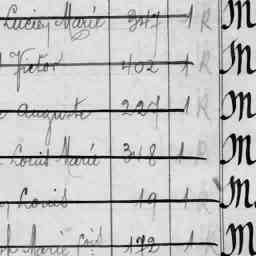 Lucien Marie 347 1 R M
Victor 402 1 R M
auguste 227 1 R M
Louis Marie 318 1 R M
Louis 19 1 R M.
Marie 172 1 R M